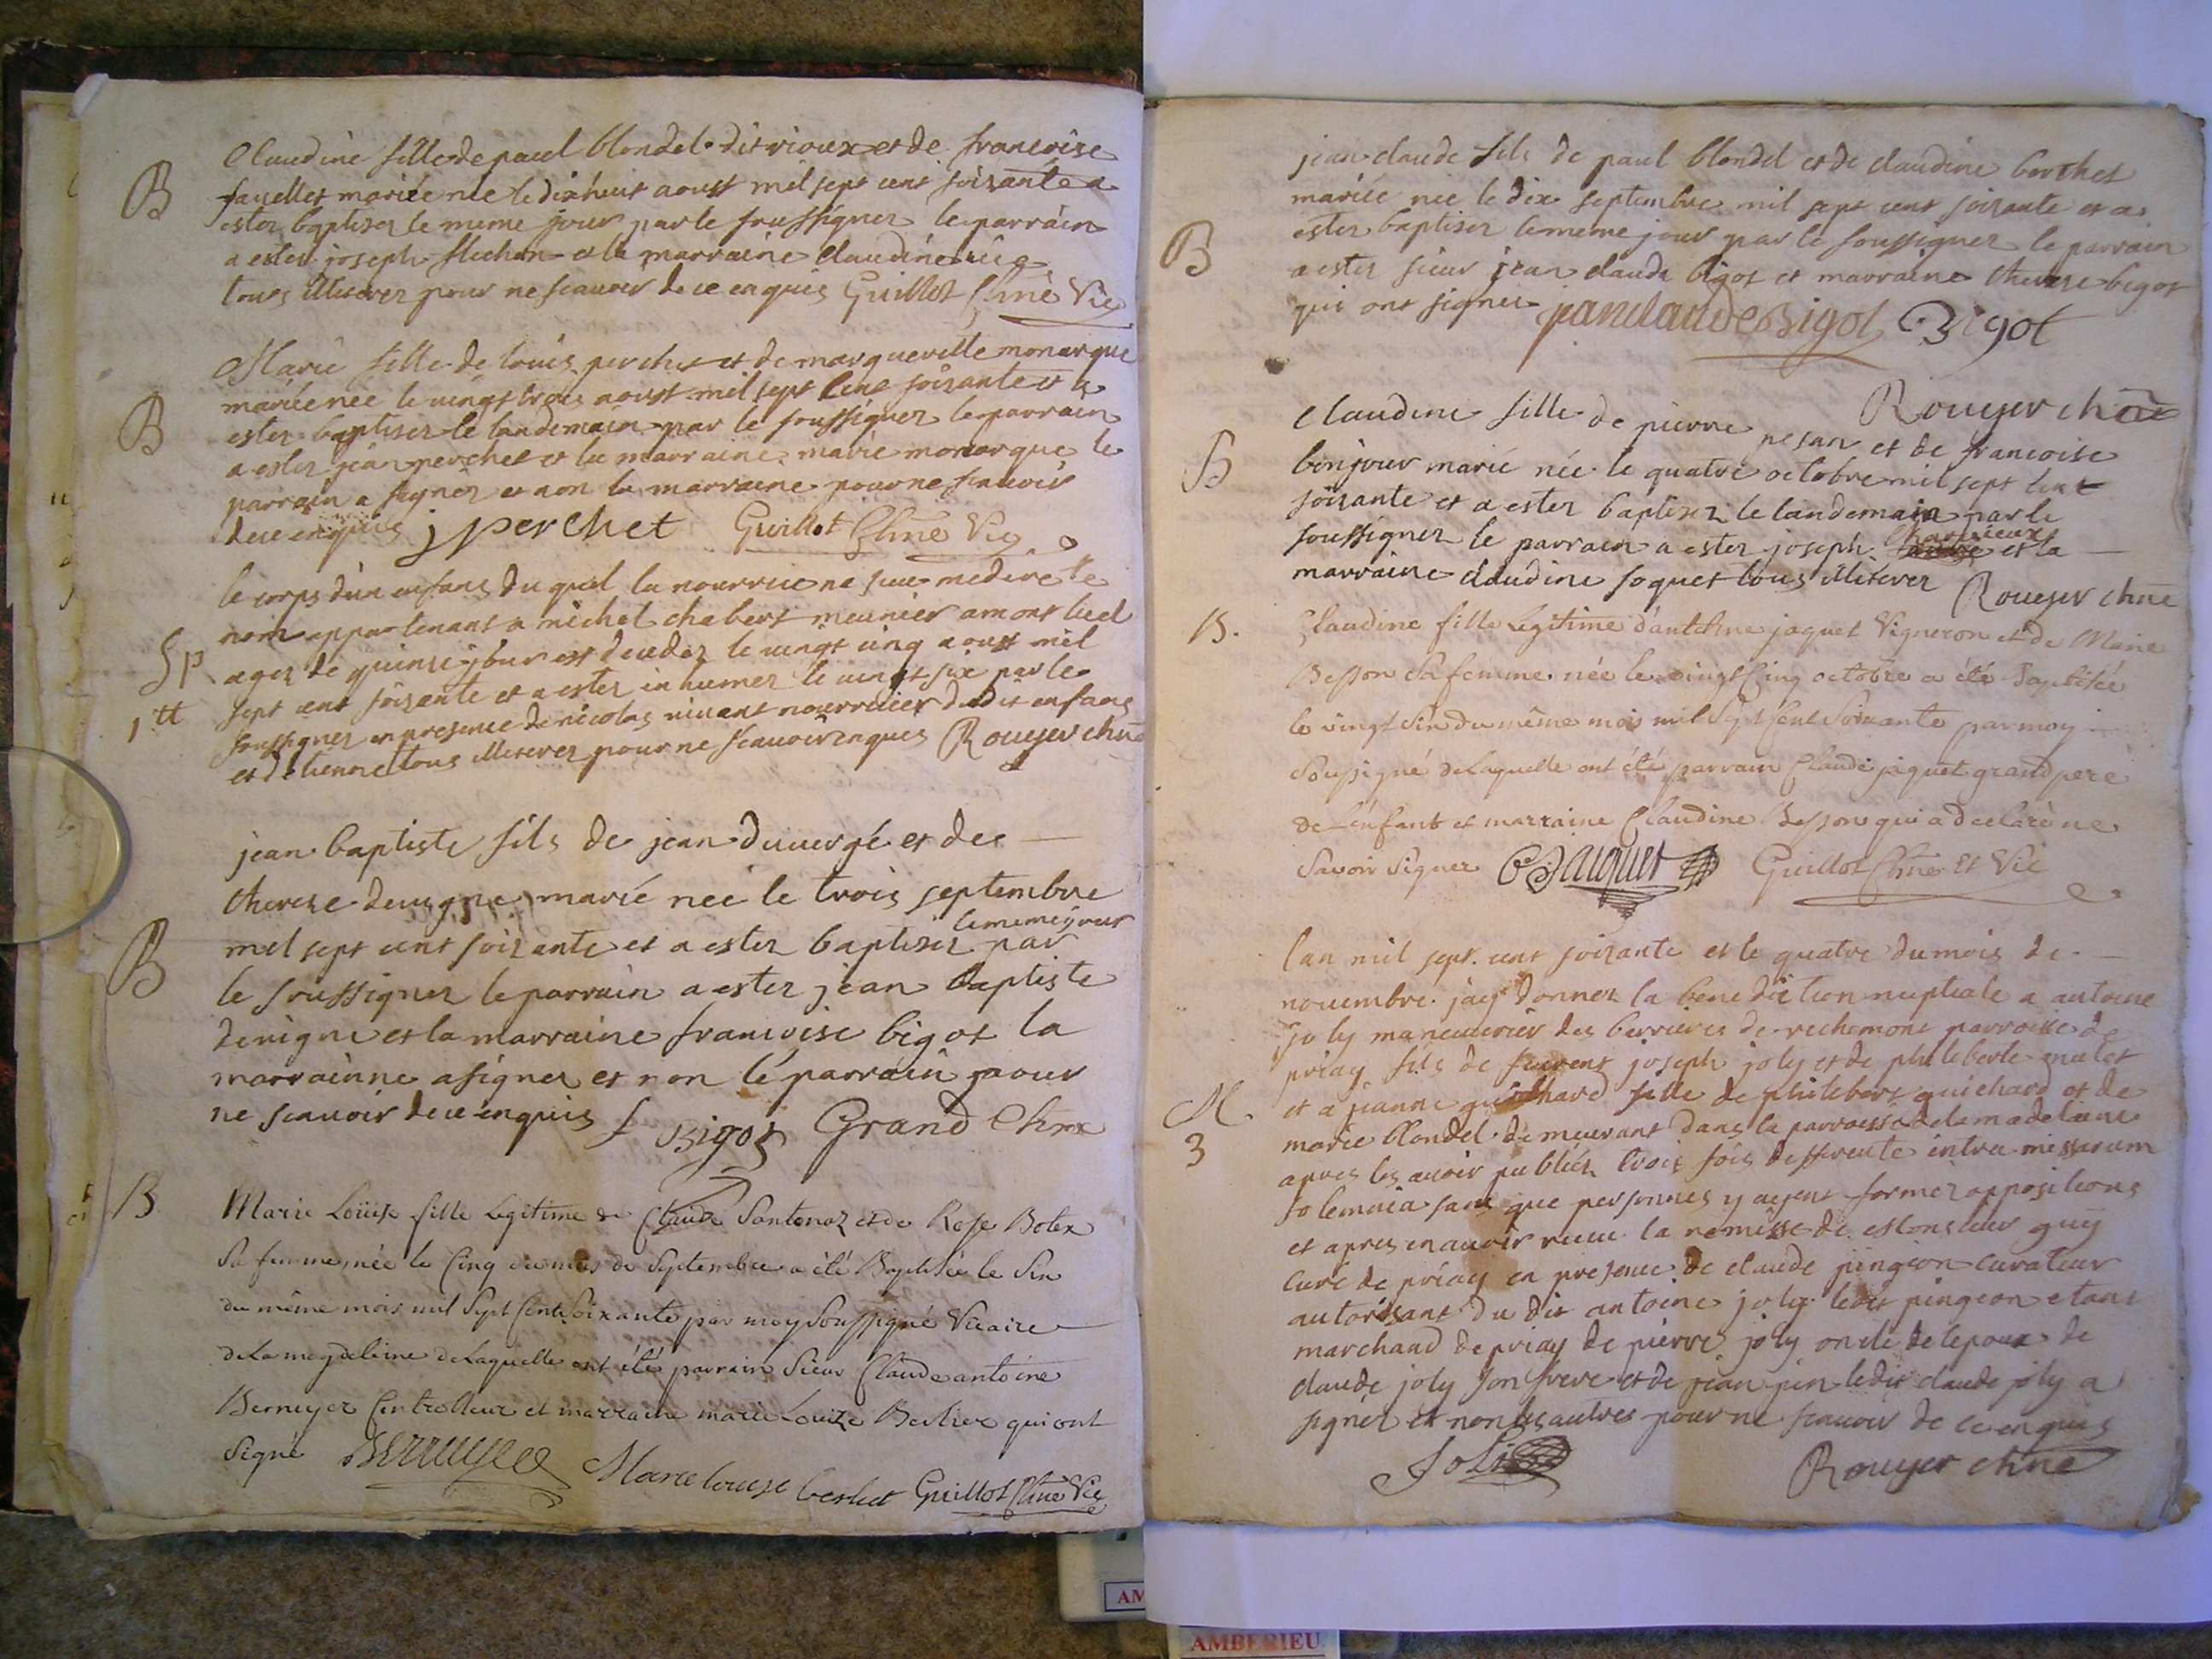 B
Claudine fille de paul blondel dit rioux et de francoise
fauellet mariée née le dixhuit aoust mil sept cent soizante a
ester baptiser le meme jour par le soussigner le parrain
a ester joseph flechon et la marraine Claudine
tous illiterez pour ne scauoir de ce enquis Guillot Chne Vic
B
Marie fille de louis perchet et de marguerille monarque
mariée née le uingt trois aoust mil sept Cent soizante et a
ester baptiser le landemain par le soussigner le parrain
a ester jean perchet et la marraine marie monarque le
parrain a signer et non la marraine pour ne scauoir
de ce enquis j perchet Guillot Chne Vic
le corps d'un enfans du quel la nourrice ne sceu me dire le
nom appartenant a michel chabert meunier a mont luel
Sp
ager de quinze jour est deceder le uingt cinq aoust mil
1tt
sept cent soizante et a ester enhumer le uingt six par le
soussigner en presence de nicolas niuant nourricier dudit enfans
et d'etienne tous illiterez pour ne scauoir enquis Rouyer chne
jean baptiste fils de jean duuergé et de
therese deuigne marié née le trois septembre
le meme jour
B
mil sept cent soizante et a ester baptiser par
le soussigner le parrain a ester jean baptiste
deuigne et la marraine francoise bigot la
marrainne a signer et non le parrain pour
ne scauoir de ce enquis f Bigot Grand Chne
B.
Marie Loüise fille Legitime de Claude Santonaz et de Rose Botex
Sa femme, née le Cinq du mois de Septembre a été Baptisée le Six
du même mois mil Sept Cent Soixante par moy Soussigné Vicaire
de La magdeleine de Laquelle ont été parrain Sieur Claude antoine
Berruyer Controlleur et marraine marie Louize Berlier qui ont
Signé Berruyer Marie louise berliet Guillot Chne Vic
jean claude fils de paul blondel et de claudine berthet
mariée née le dix septembre mil sept cent soizante et a
B
ester baptiser le meme jour par le soussigner le parrain
a ester sieur jean claude bigot et marraine therese bigot
qui ont signer jean claude Bigot Bigot
Rouyer chne
B
Claudine fille de pierre pesan et de francoise
bonjour marié née le quatre octobre mil sept cent
soizante et a ester baptiser le landemain par le
soussigner le parrain a ester joseph et la
marraine claudine soquet tous illiterez Rouyer chne
B.
Claudine fille Legitime d'antelme jaquet Vigneron et de Marie
Besson Sa femme née le vingt Cinq octobre a été Baptisée
le vingt Six du même mois mil Sept Cent Soixante par moy
Soussigné de Laquelle ont été parrain Claude jaquet grand pere
de l'enfant et marraine Claudine Besson qui a declaré ne
Savoir Signer C Jaquet Guillot Chne et Vic
lan mil sept cent soizante et le quatre du mois de
nouembre jay donner la benediction nuptiale a antoine
joly maneuurier des berrieres de richemont parroisse de
priay fils de feurent joseph joly et de phileberte mulet
M.
et a jeanne guichard fille de philebert guichard et de
3
marie blondel demeurant dans la parroisse de la madelaene
apres les auoir publiéz trois fois differente intra missarum
solemnia sans que personnes y ayent former oppositions
et apres en auoir receu la remisse de messieur guy
curé de priay en presence de claude pingeon curateur
autorisant du dit antoine joly ledit pingeon etant
marchand de priay de pierre joly oncle de lepoux de
claude joly son frere et de jean jin ledit claude joly a
signer et non les autres pour ne scauoir de ce enquis
Joli Rouyer chne
AMBERIEU